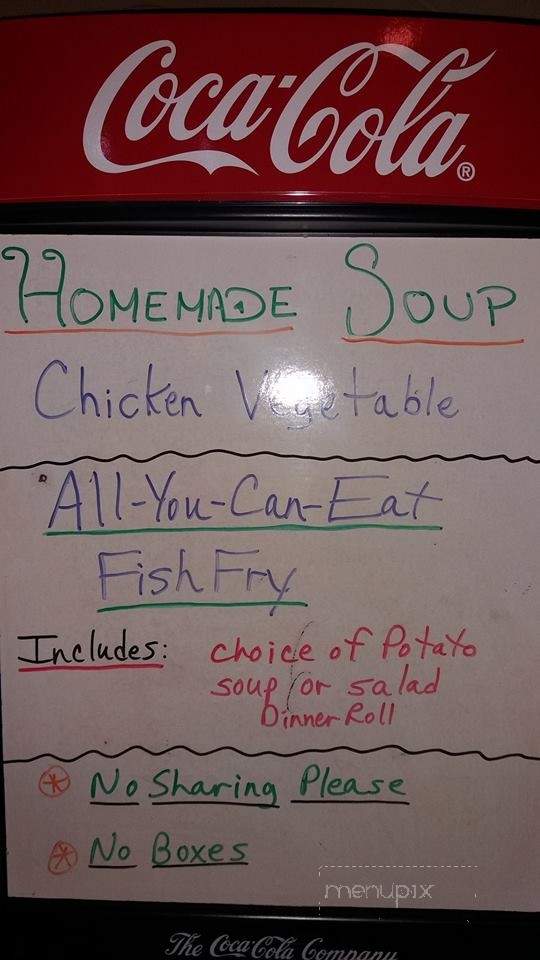 Coca-Cola®
HOMEMADE SOUP
Chicken Vegetable
All-You-Can-Eat
Fish Fry
Includes: choice of Potato
soup / or salad
Dinner Roll
* No Sharing Please
* No Boxes
menupix
The Coca-Cola Company